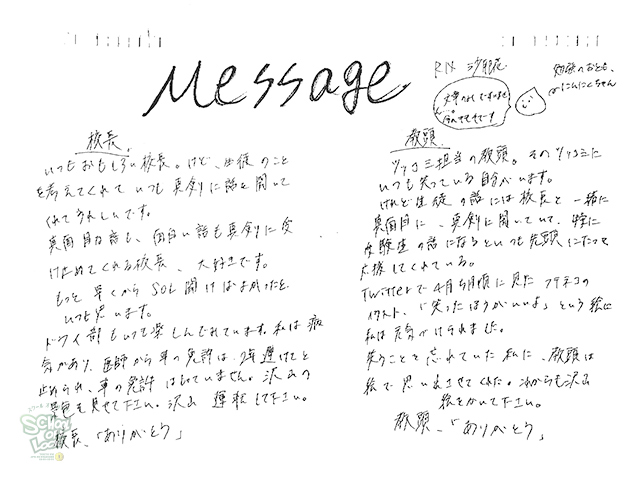 Message
RN 沙羅
勉強のおとも、
にんにくちゃん
校長
いつもおもしろい校長。けど、生徒のこと
を考えてくれていつも真剣に話を聞いて
くれてうれしいです。
真面目な話も、面白い話も真剣に受
け止めてくれる校長、大好きです。
もっと早くからSOL聞けばよかったと
いつも思います。
ドライブ部もいつも楽しんでいます。私は病
気があり、医師から車の免許は、2年遅けてと
止められ、車の免許はもっていません。沢山の
景色を見せて下さい。沢山 運転して下さい。
校長、「ありがとう」
教頭
ツッコミ担当の教頭。そのツッコミに
いつも笑っている自分がいます。
けれど生徒の話には校長と一緒に
真面目に、真剣に聞いていて、特に
受験生の話になるといつも先頭にたって
応援してくれている。
Twitterで4月5月頃に見たフタネコの
イラスト、「笑ったほうがいいよ」という絵に
私は元気づけられました。
笑うことを忘れていた私に、教頭は
絵で思い出させてくれた。これからも沢山
絵をかいて下さい。
教頭、「ありがとう」